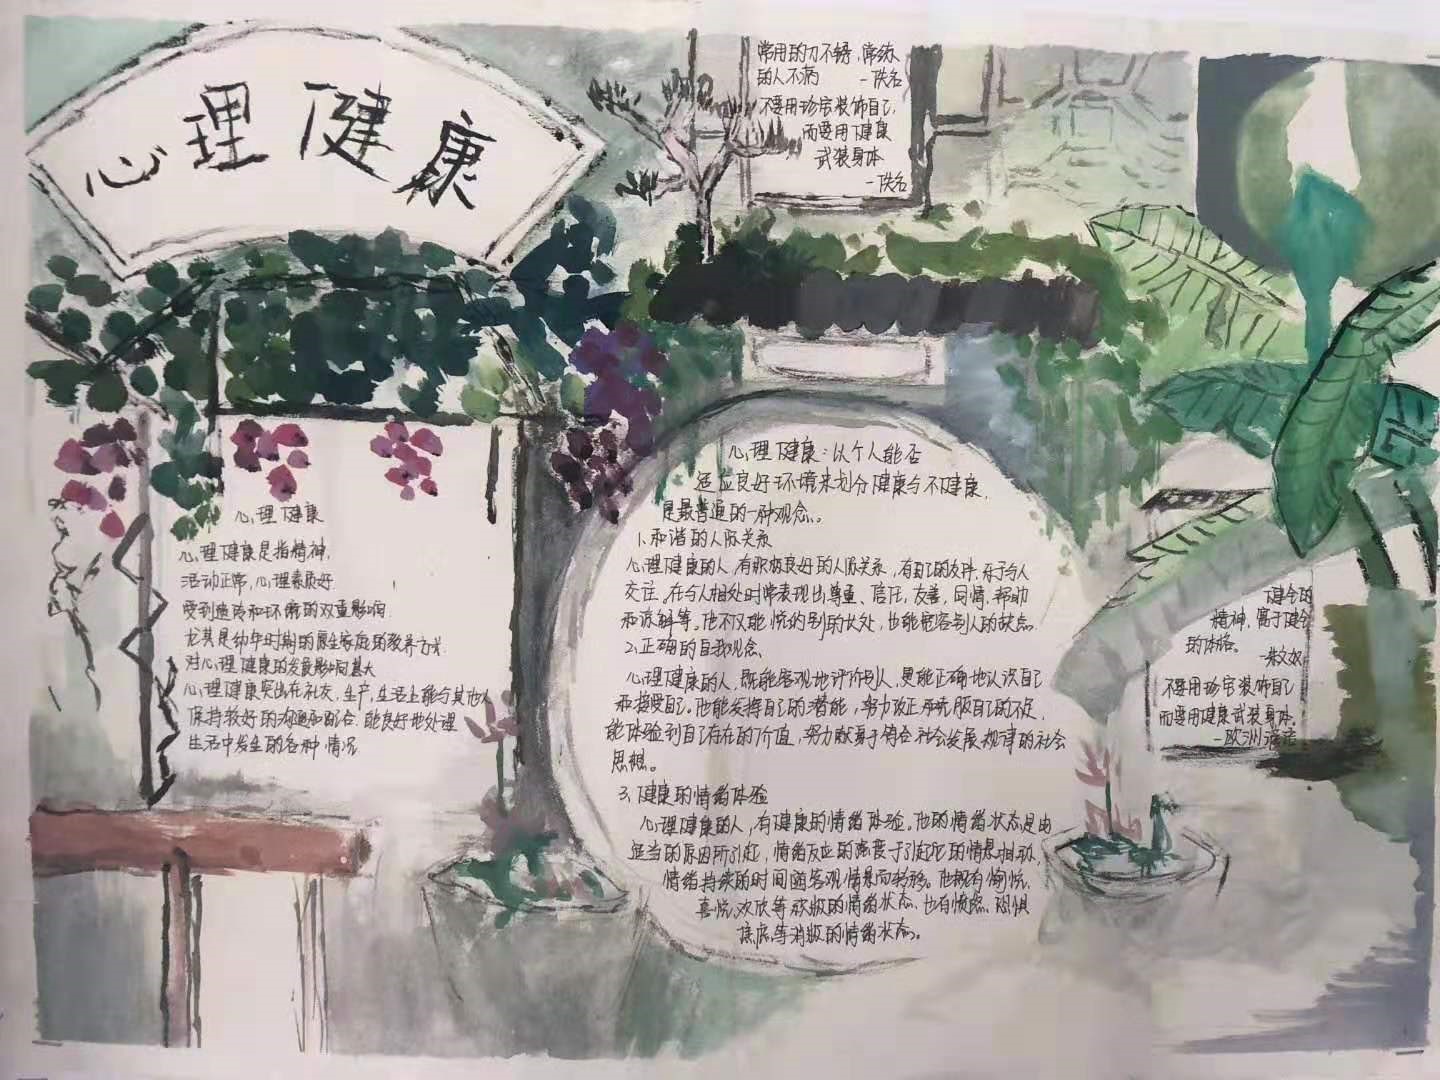 心理健康
常用的刀不锈，常练
的人不病 -佚名
不要用珍宝装饰自己，
而要用健康
武装身体
-佚名
心理健康
心理健康是指精神，
活动正常，心理素质好
受到遗传和环境的双重影响
尤其是幼年时期的原生家庭的教养方式
对心理健康的发展影响甚大
心理健康突出在社交，生产，生活上能与其他人
保持较好的沟通和配合，能良好地处理
生活中发生的各种情况
心理健康：以个人能否
适应良好环境来划分健康与不健康，
是最普通的一种观念。
1、和谐的人际关系
心理健康的人，有积极良好的人际关系，有自己的友伴，乐于与人
交往。在与人相处时常表现出尊重、信任，友善，同情，帮助
和谅解等。他不仅能悦纳别的长处，也能宽容别人的缺点
2、正确的自我观念
心理健康的人，既能客观地评价别人，更能正确地认识自己
和接受自己。他能发挥自己的潜能，努力改正和克服自己的不足，
能体验到自己存在的价值，努力献身于符合社会发展规律的社会
思想。
3、健康的情绪体验
心理健康的人，有健康的情绪体验。他的情绪状态是由
适当的原因所引起，情绪反应的强度于引起它的情景相称，
情绪持续的时间随客观情景而转移。他既有愉悦，
喜悦、欢欣等积极的情绪状态、也有愤怒、恐惧
焦虑等消极的情绪状态。
健全的
精神，高于健全
的体格。
不要用珍宝装饰自己
而要用健康武装身体。
-欧洲谚语